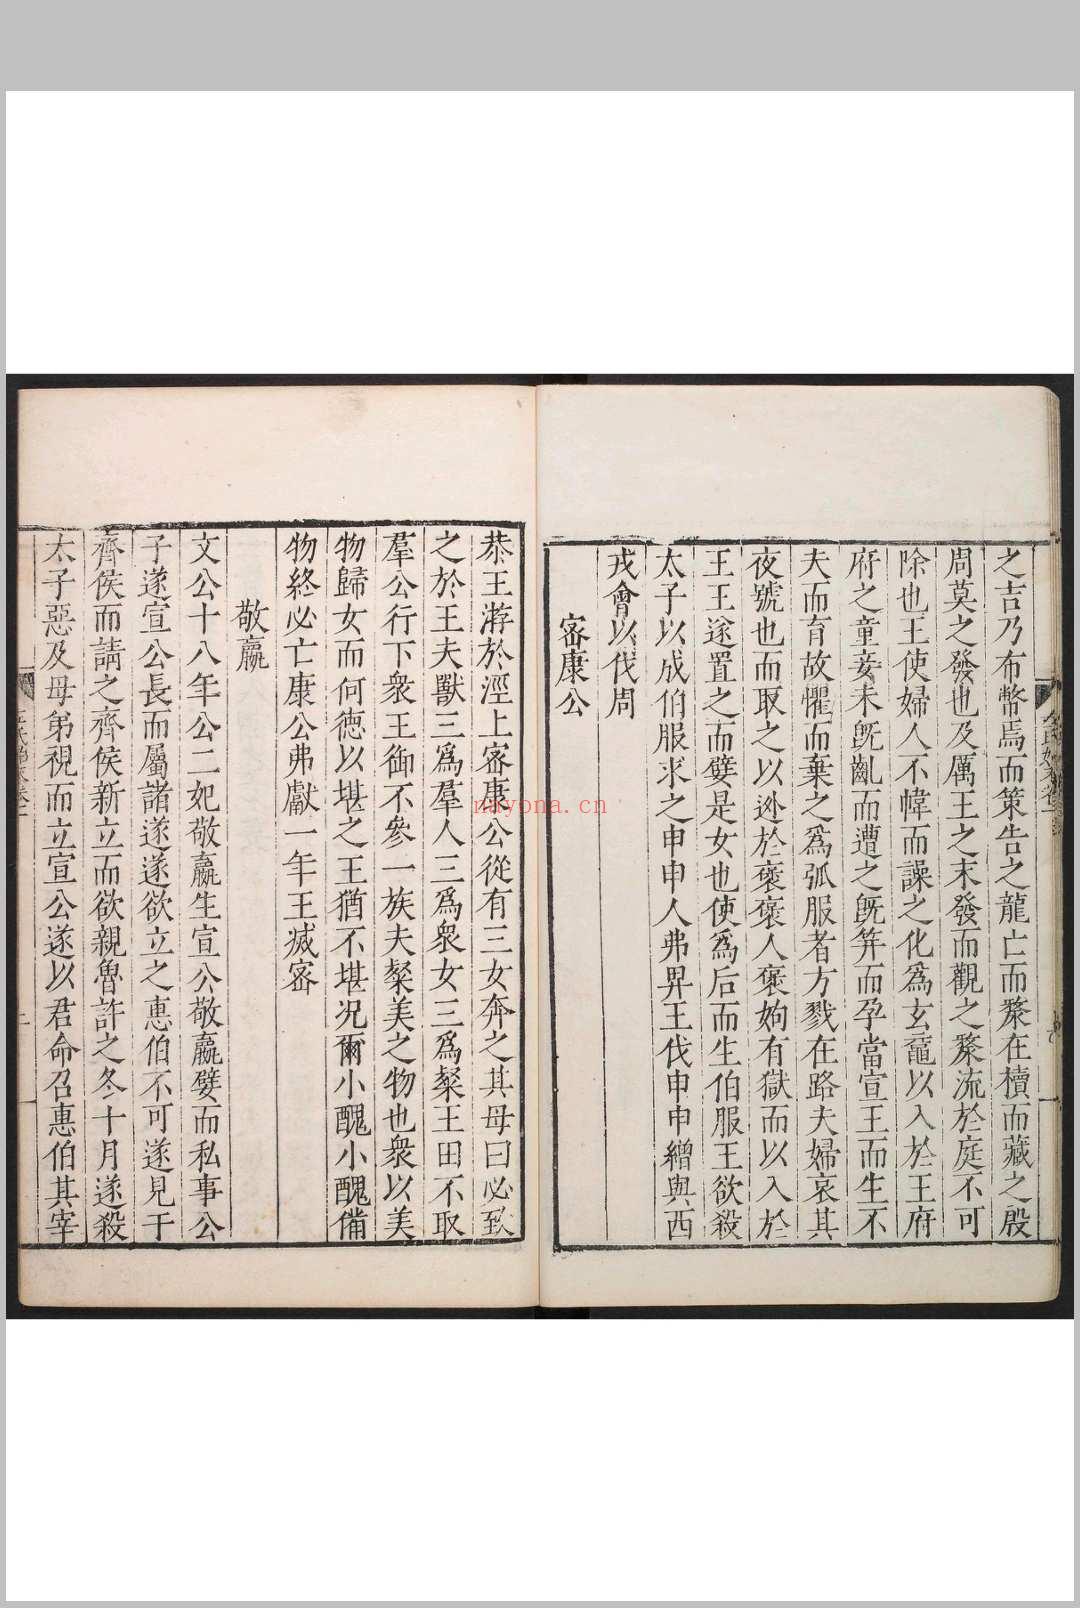 之吉乃布幣焉而策告之龍亡而漦在櫝而藏之殷
周莫之發也及厲王之末發而觀之漦流於庭不可
除也王使婦人不幃而譟之化爲玄黿以入於王府
府之童妾未旣齓而遭之旣筓而孕當宣王而生不
夫而育故懼而棄之爲弧服者方戮在路夫婦哀其
夜號也而取之以逃於褒褒人褒姁有獄而以入於
王王遂置之而嬖是女也使爲后而生伯服王欲殺
太子以成伯服求之申申人弗畀王伐申申繒與西
戎會以伐周
密康公
恭王游於涇上密康公從有三女奔之其母曰必致
之於王夫獸三爲羣人三爲衆女三爲粲王田不取
羣公行下衆王御不參一族夫粲美之物也衆以美
物歸女而何德以堪之王猶不堪况爾小醜小醜備
物終必亡康公弗獻一年王滅密
敬嬴
文公十八年公二妃敬嬴生宣公敬嬴嬖而私事公
子遂宣公長而屬諸遂遂欲立之惠伯不可遂見于
齊侯而請之齊侯新立而欲親魯許之冬十月遂殺
太子惡及母弟視而立宣公遂以君命召惠伯其宰
nayona.cn